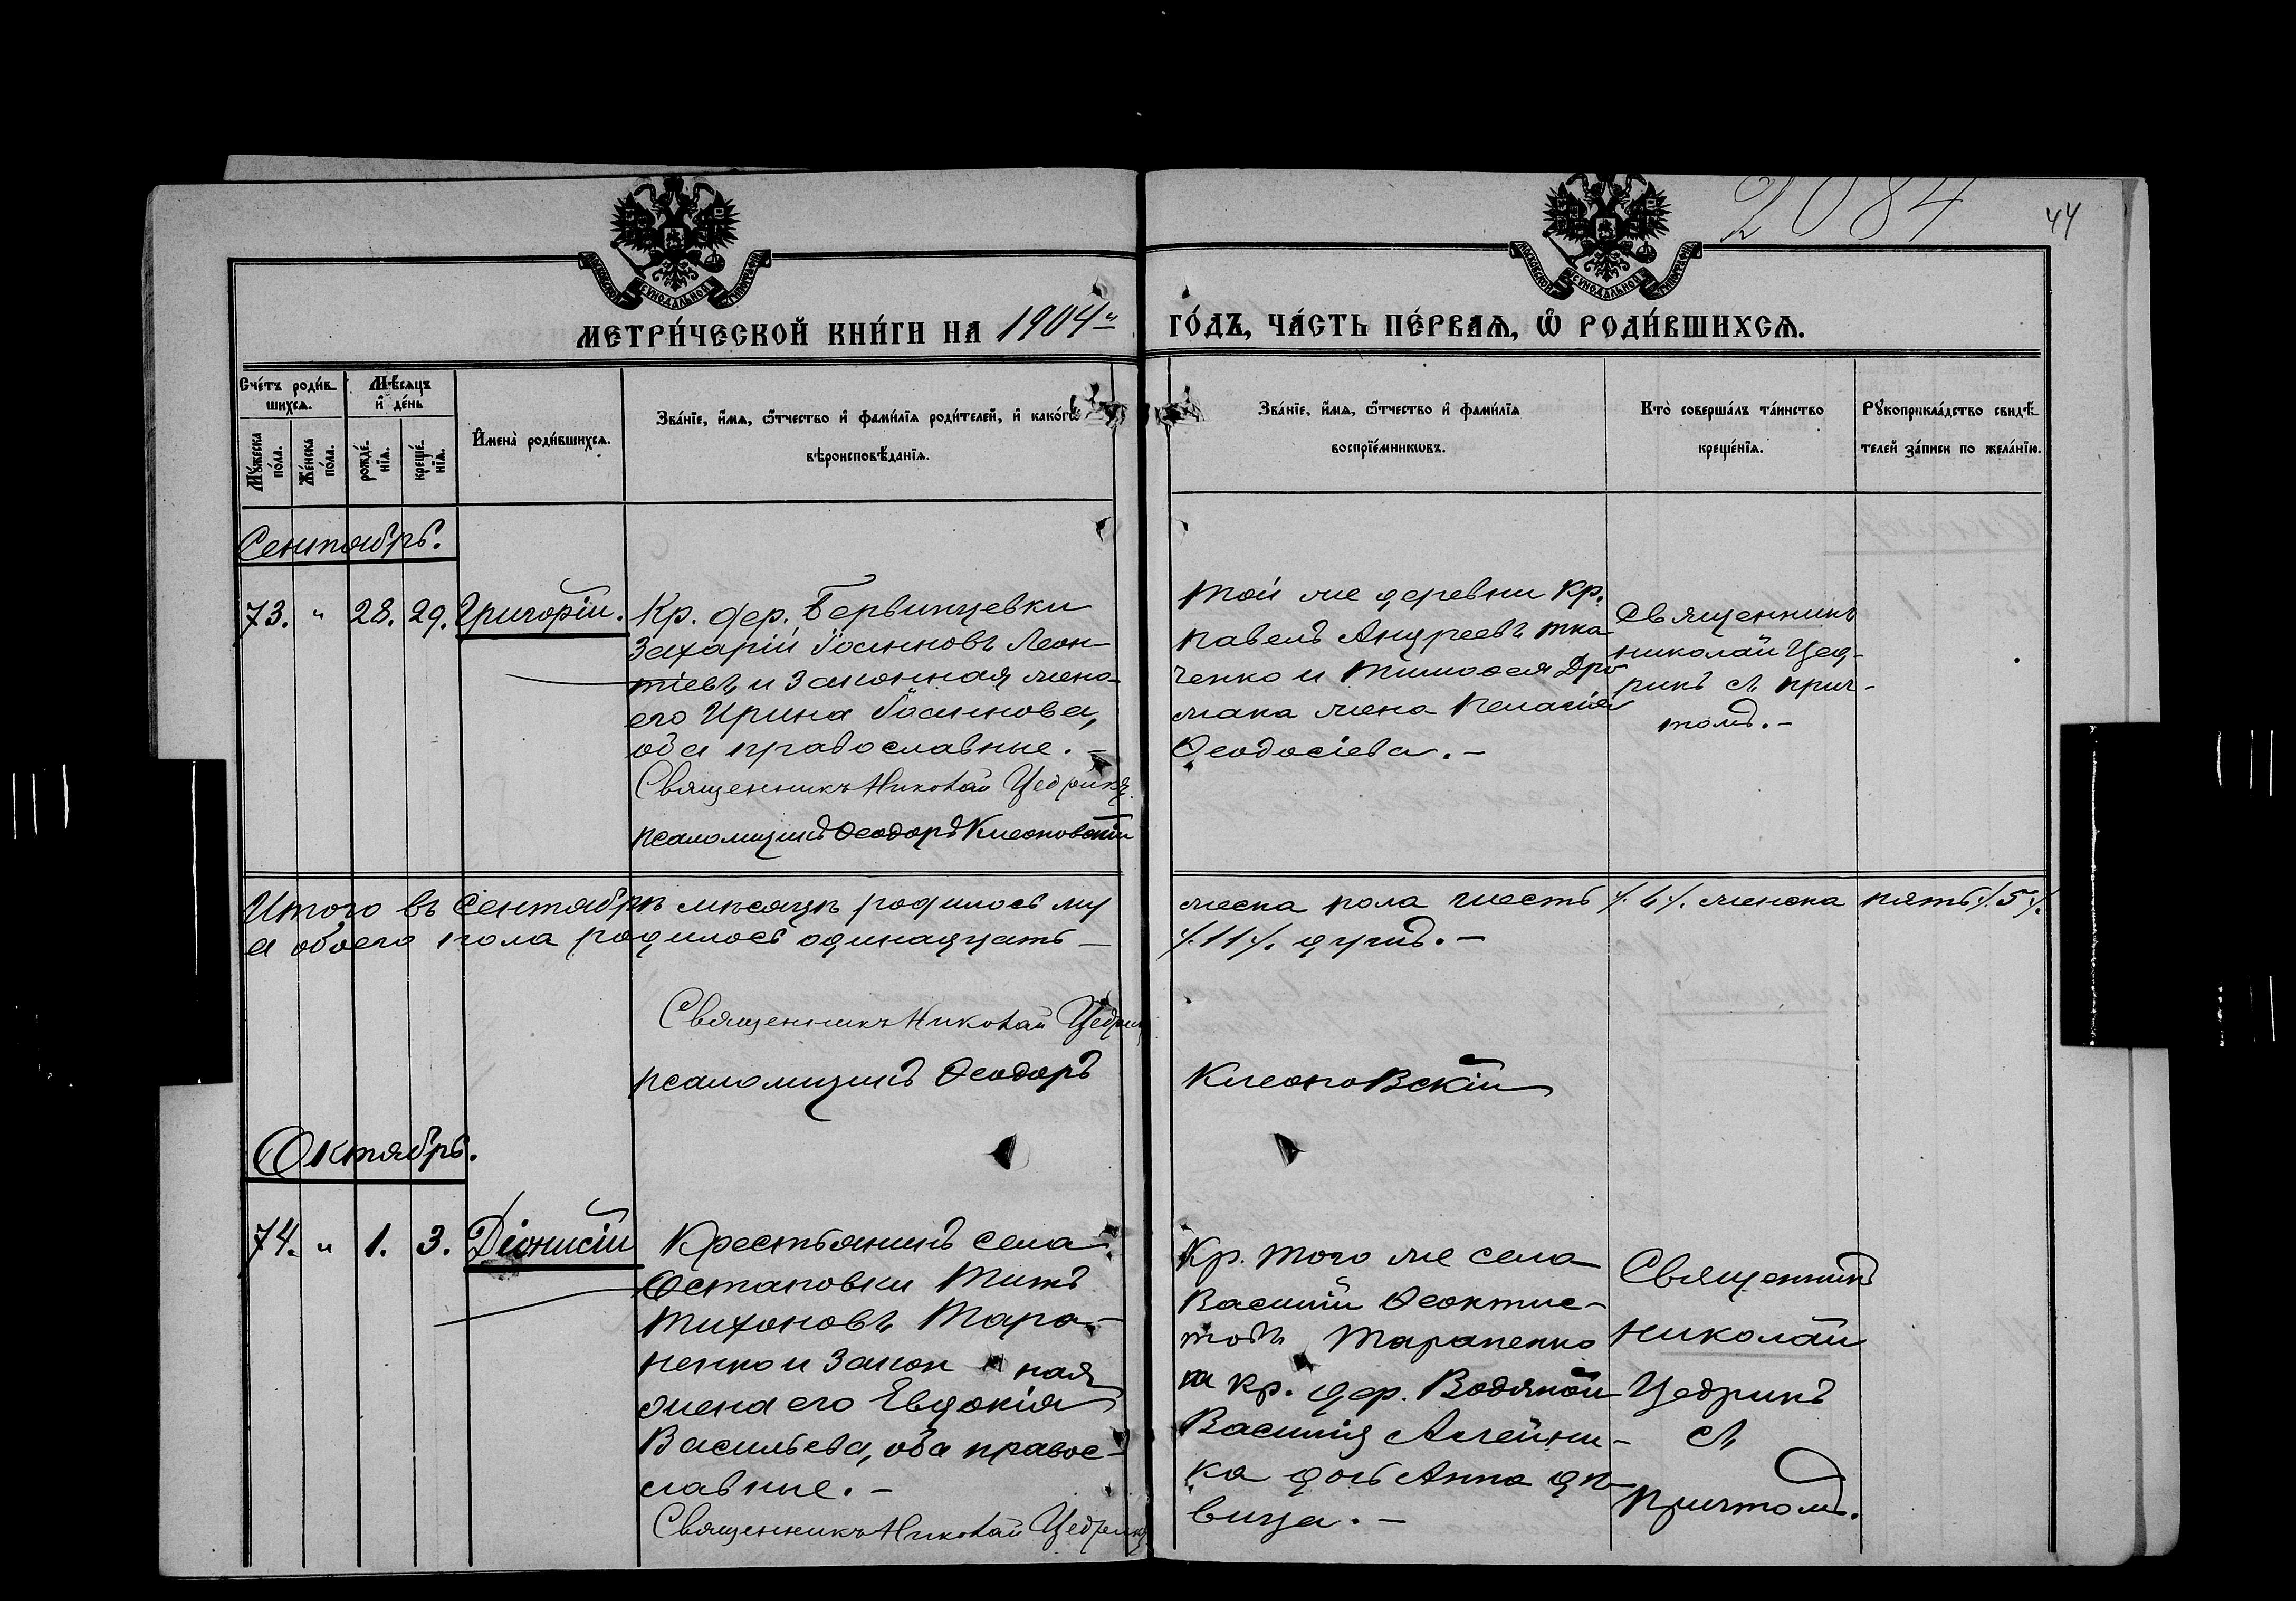 2084
44
МОСКОВСКОЙ СѴНОДАЛЬНОЙ ТИПОГРАФІИ
МОСКОВСКОЙ СѴНОДАЛЬНОЙ ТИПОГРАФІИ
МЕТРИ́ЧЕСКОЙ КНИ́ГИ НА 1904й
ГО́ДЪ, ЧА́СТЬ ПЕ́РВАѦ, Ѡ҆ РОДИ́ВШИХСѦ.
Сче́тъ роди́в-
шихсѧ.
Мѣ́сѧцъ
и҆ де́нь
Мꙋ́жеска
по́ла.
Же́нска
по́ла.
рожде́-
нїѧ.
креще́-
нїѧ.
И҆мена̀ роди́вшихсѧ.
Зва́нїе, и҆́мѧ, ѻ҆́тчество и҆ фами́лїѧ роди́телей, и҆ како́гѡ
вѣроисповѣ́данїѧ.
Зва́нїе, и҆́мѧ, ѻ҆́тчество и҆ фами́лїѧ
воспрїе́мникѡвъ.
Кто̀ соверша́лъ та́инство
креще́нїѧ.
Рꙋкоприкла́дство свидѣ́-
телей за́писи по жела́нїю.
Сентябрь.
73. " 28. 29. Григорій.
Кр. дер. Бервинцевки
Захарій Іоанновъ Леон-
тіевъ и законная жена
его Ирина Іоаннова,
оба православные. -
Священникъ Николай Цедрикъ
псаломщикъ Ѳеодоръ Клеоповскій
Той же деревни кр.
Павелъ Андреевъ Тка
ченко и Тимоѳея Дро
жака жена Пелагія
Ѳеодосіева. -
Священникъ
Николай Цед-
рикъ съ прич-
томъ. -
Итого въ сентябрѣ мѣсяцѣ родилось му
жеска пола шесть /.6/. женска пять /.5/.
а обоего пола родилось одинадцать -
/.11/. душъ. -
Священникъ Николай Цедрик
псаломщикъ Ѳеодоръ
Клеоповскій
Октябрь.
74. " 1. 3. Діонисій
Крестьянинъ села
Остаповки Титъ
Тихоновъ Тара-
ненко и закон ная
жена его Евдокія
Васильева, оба правос-
лавные. -
Священникъ Николай Цедрикъ
Кр. того же села
Василій Ѳеоктис-
товъ Тараненко
и кр. дер. Водяной
Василія Алейни-
ка дочь Анна дѣ-
вица. -
Священникъ
Николай
Цедрикъ
съ
Причтомъ.